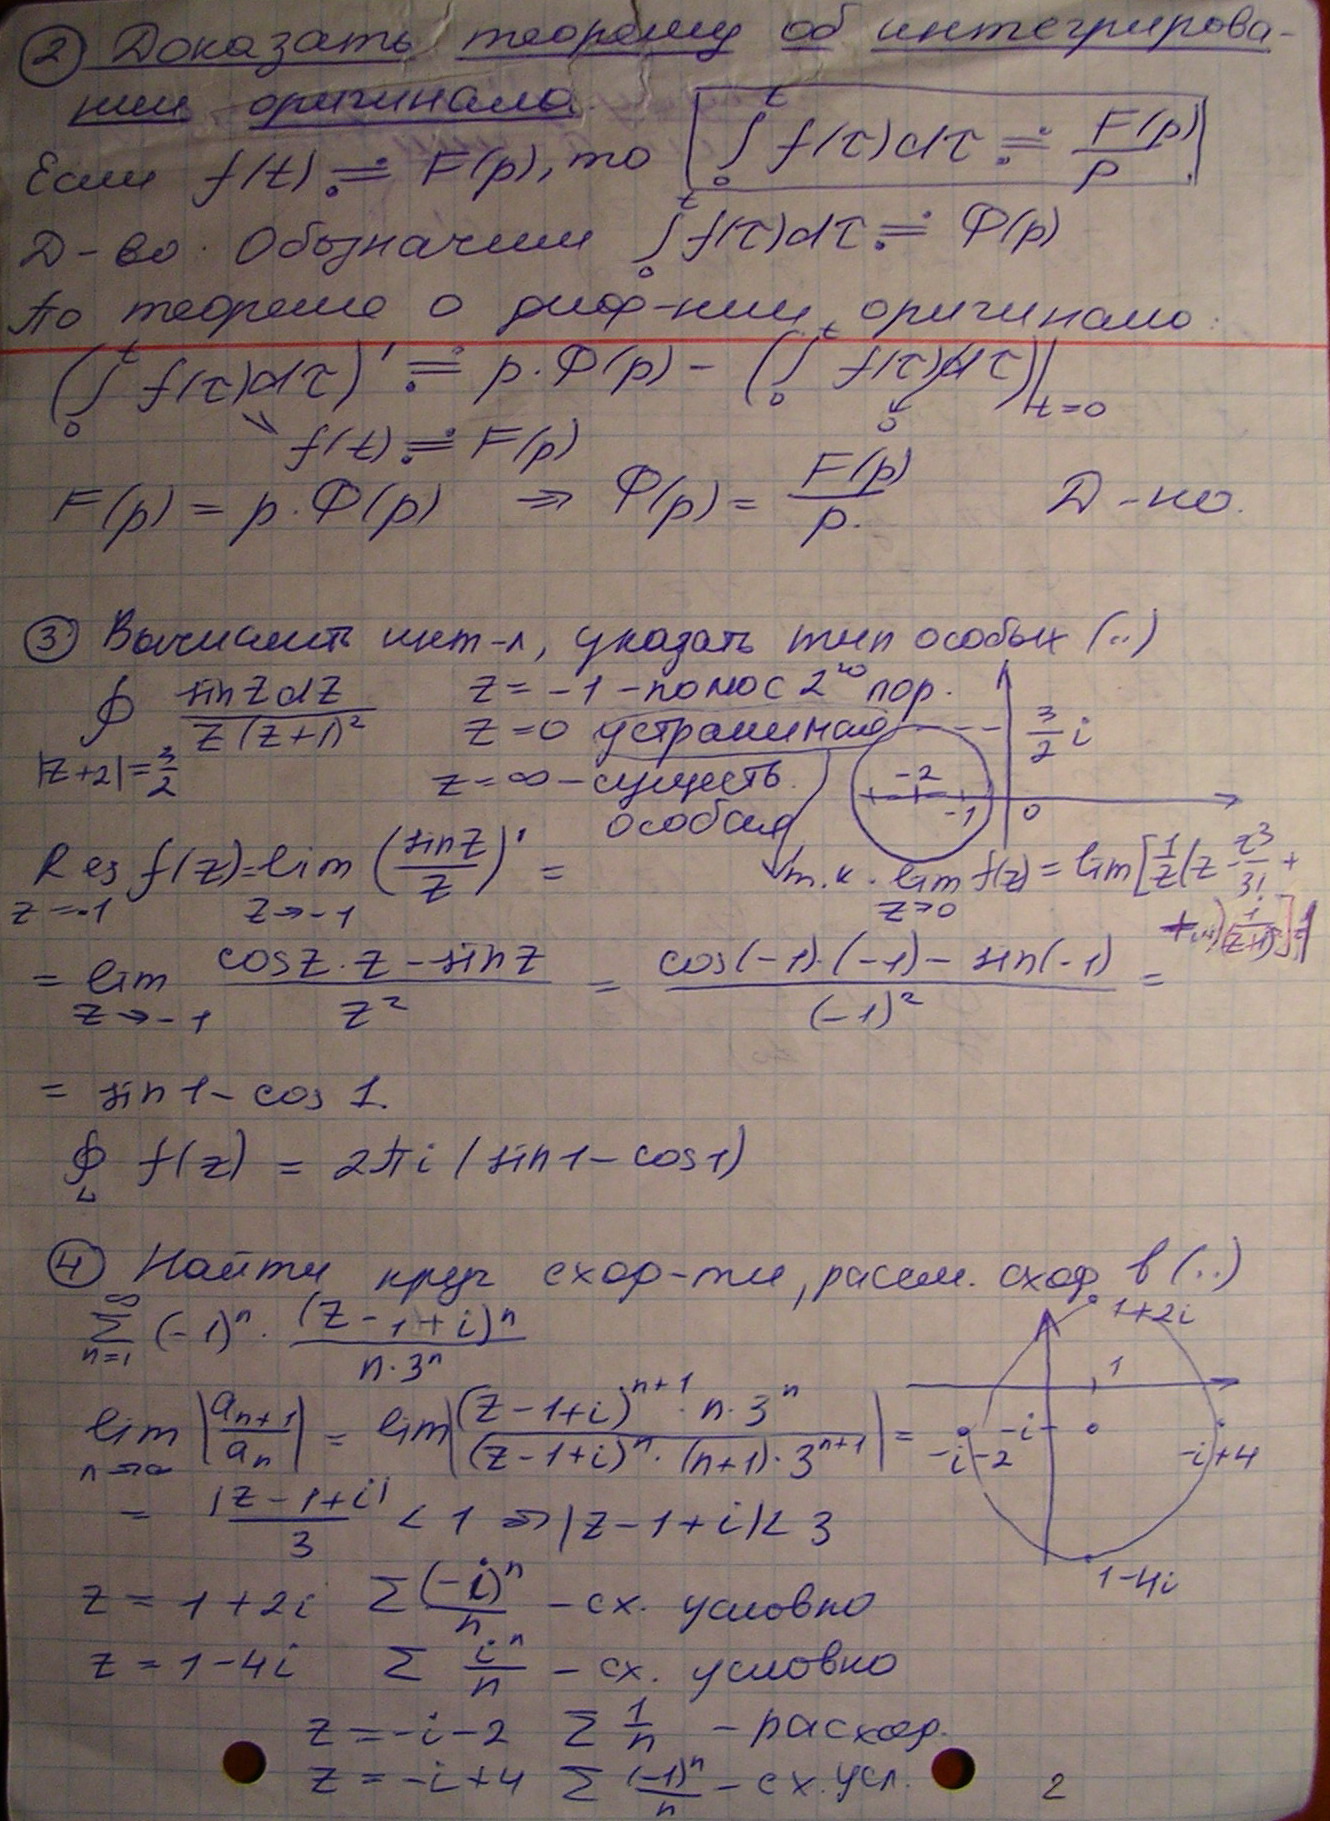 ② Доказать теорему об интегрирова-
нии оригинала.
Если f(t) ≓ F(p), то ∫₀ᵗ f(τ)dτ ≓ F(p)/p
Д-во. Обозначим ∫₀ᵗ f(τ)dτ ≓ Φ(p)
По теореме о диф-нии оригинала:
(∫₀ᵗ f(τ)dτ)' ≓ p·Φ(p) - (∫₀ᵗ f(τ)dτ)|t=0
↘ f(t) ≓ F(p) 0
F(p) = p·Φ(p) ⇒ Φ(p) = F(p)/p. Д-но.
③ Вычислить инт-л, указать тип особых (..)
∮ sinzdz/z(z+1)² z = -1 - полюс 2ᵒᵍᵒ пор.
|z+2|=3/2 z=0 устранимая
z=∞ - существ.
особая
3/2 i
-2 -1 0
Res f(z) = lim (sinz/z)' =
z=-1 z→-1
т.к. lim f(z) = lim[1/z(z - z³/3! +
z→0
+...) 1/(z+1)²]=1
= lim cosz·z - sinz/z² = cos(-1)·(-1) - sin(-1)/(-1)² =
z→-1
= sin1 - cos1.
∮ f(z) = 2πi(sin1 - cos1)
L
④ Найти круг сход-ти, рассм. сход в (..)
∞∑n=1 (-1)ⁿ · (z-1+i)ⁿ/n·3ⁿ
1+2i
1
-i-2 -i -i+4
1-4i
lim n→∞ |aₙ₊₁/aₙ| = lim|(z-1+i)ⁿ⁺¹·n·3ⁿ/(z-1+i)ⁿ·(n+1)·3ⁿ⁺¹| =
= |z-1+i|/3 < 1 ⇒ |z-1+i| < 3
z = 1+2i ∑ (-i)ⁿ/n - сх. условно
z = 1-4i ∑ iⁿ/n - сх. условно
z = -i-2 ∑ 1/n - расход.
z = -i+4 ∑ (-1)ⁿ/n - сх. усл.
2